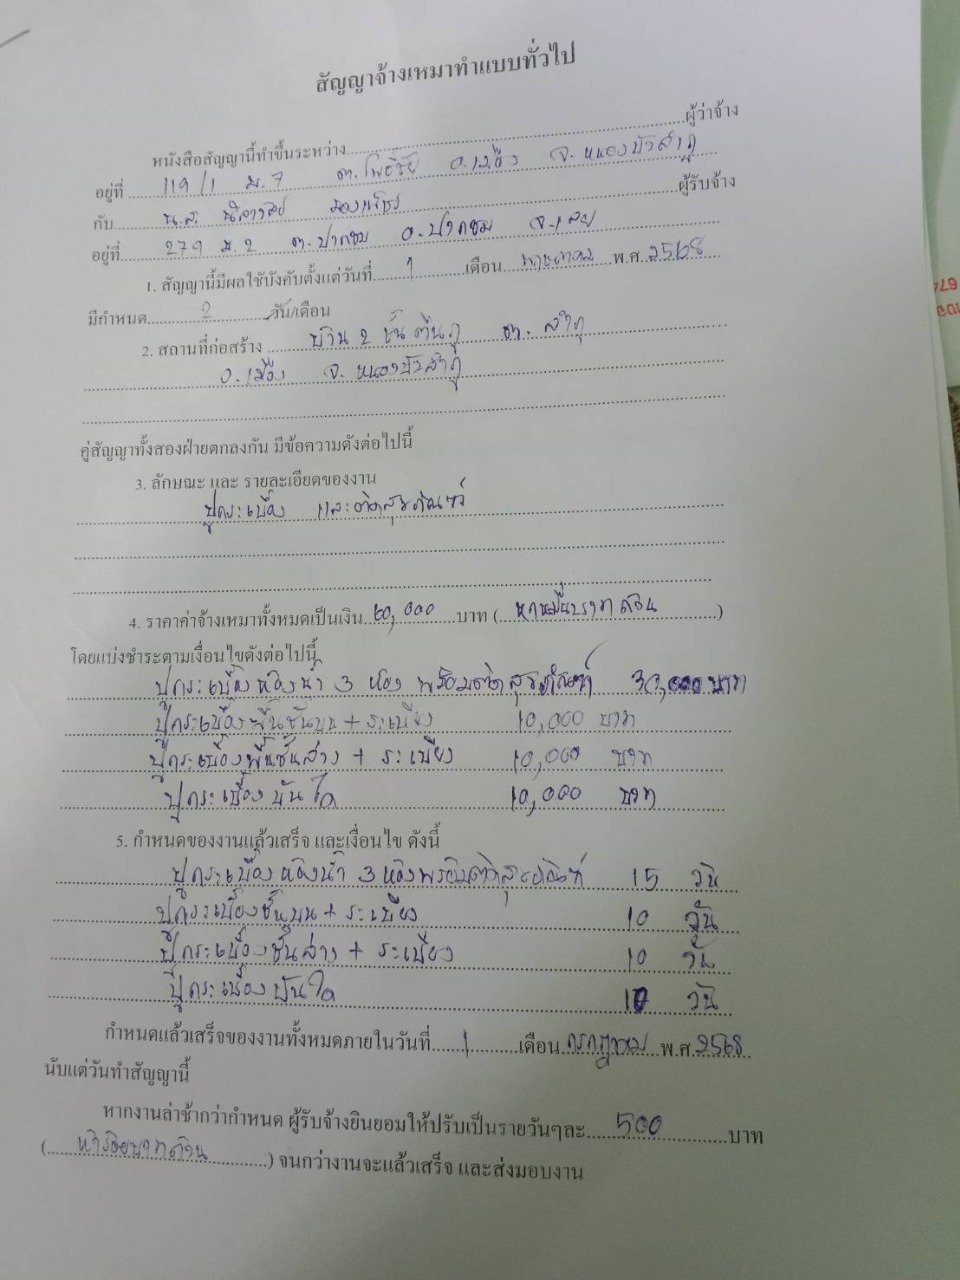 สัญญาจ้างเหมาทำแบบทั่วไป
หนังสือสัญญานี้ทำขึ้นระหว่าง..........ผู้ว่าจ้าง
อยู่ที่ 119/1 ม.7 ต.โพธิ์ชัย อ.เมือง จ.หนองบัวลำภู
กับ น.ส. ผู้รับจ้าง
อยู่ที่ 279 ม.2 ต.ปากชม อ.ปากชม จ.เลย
1. สัญญานี้มีผลใช้บังคับตั้งแต่วันที่ 1 เดือน พฤษภาคม พ.ศ. 2568
มีกำหนด 2 วัน/เดือน
2. สถานที่ก่อสร้าง บ้าน 2 ชั้น ตีนภู ต. ลำภู
อ.เมือง จ. หนองบัวลำภู
คู่สัญญาทั้งสองฝ่ายตกลงกัน มีข้อความดังต่อไปนี้
3. ลักษณะ และ รายละเอียดของงาน
ปูกระเบื้อง และติดสุขภัณฑ์
4. ราคาค่าจ้างเหมาทั้งหมดเป็นเงิน 60,000 บาท ( หกหมื่นบาทถ้วน )
โดยแบ่งชำระตามเงื่อนไขดังต่อไปนี้
ปูกระเบื้องห้องน้ำ 3 ห้อง พร้อมติดสุขภัณฑ์ 30,000 บาท
ปูกระเบื้องพื้นชั้นบน + ระเบียง 10,000 บาท
ปูกระเบื้องพื้นชั้นล่าง + ระเบียง 10,000 บาท
ปูกระเบื้องบันได 10,000 บาท
5. กำหนดของงานแล้วเสร็จ และเงื่อนไข ดังนี้
ปูกระเบื้องห้องน้ำ 3 ห้องพร้อมติดสุขภัณฑ์ 15 วัน
ปูกระเบื้องชั้นบน + ระเบียง 10 วัน
ปูกระเบื้องชั้นล่าง + ระเบียง 10 วัน
ปูกระเบื้องบันได 10 วัน
กำหนดแล้วเสร็จของงานทั้งหมดภายในวันที่ 1 เดือน กรกฎาคม พ.ศ. 2568
นับแต่วันทำสัญญานี้
หากงานล่าช้ากว่ากำหนด ผู้รับจ้างยินยอมให้ปรับเป็นรายวันๆละ 500 บาท
( ห้าร้อยบาทถ้วน ) จนกว่างานจะแล้วเสร็จ และส่งมอบงาน